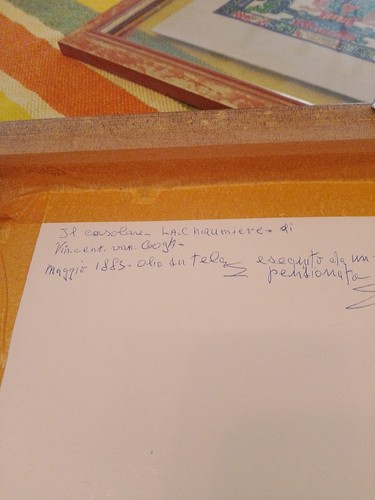 Il casolare - LA Chaumiere - di
Vincent. van. Googh -
Maggio 1885 - olio su tela eseguito da un
pensionata